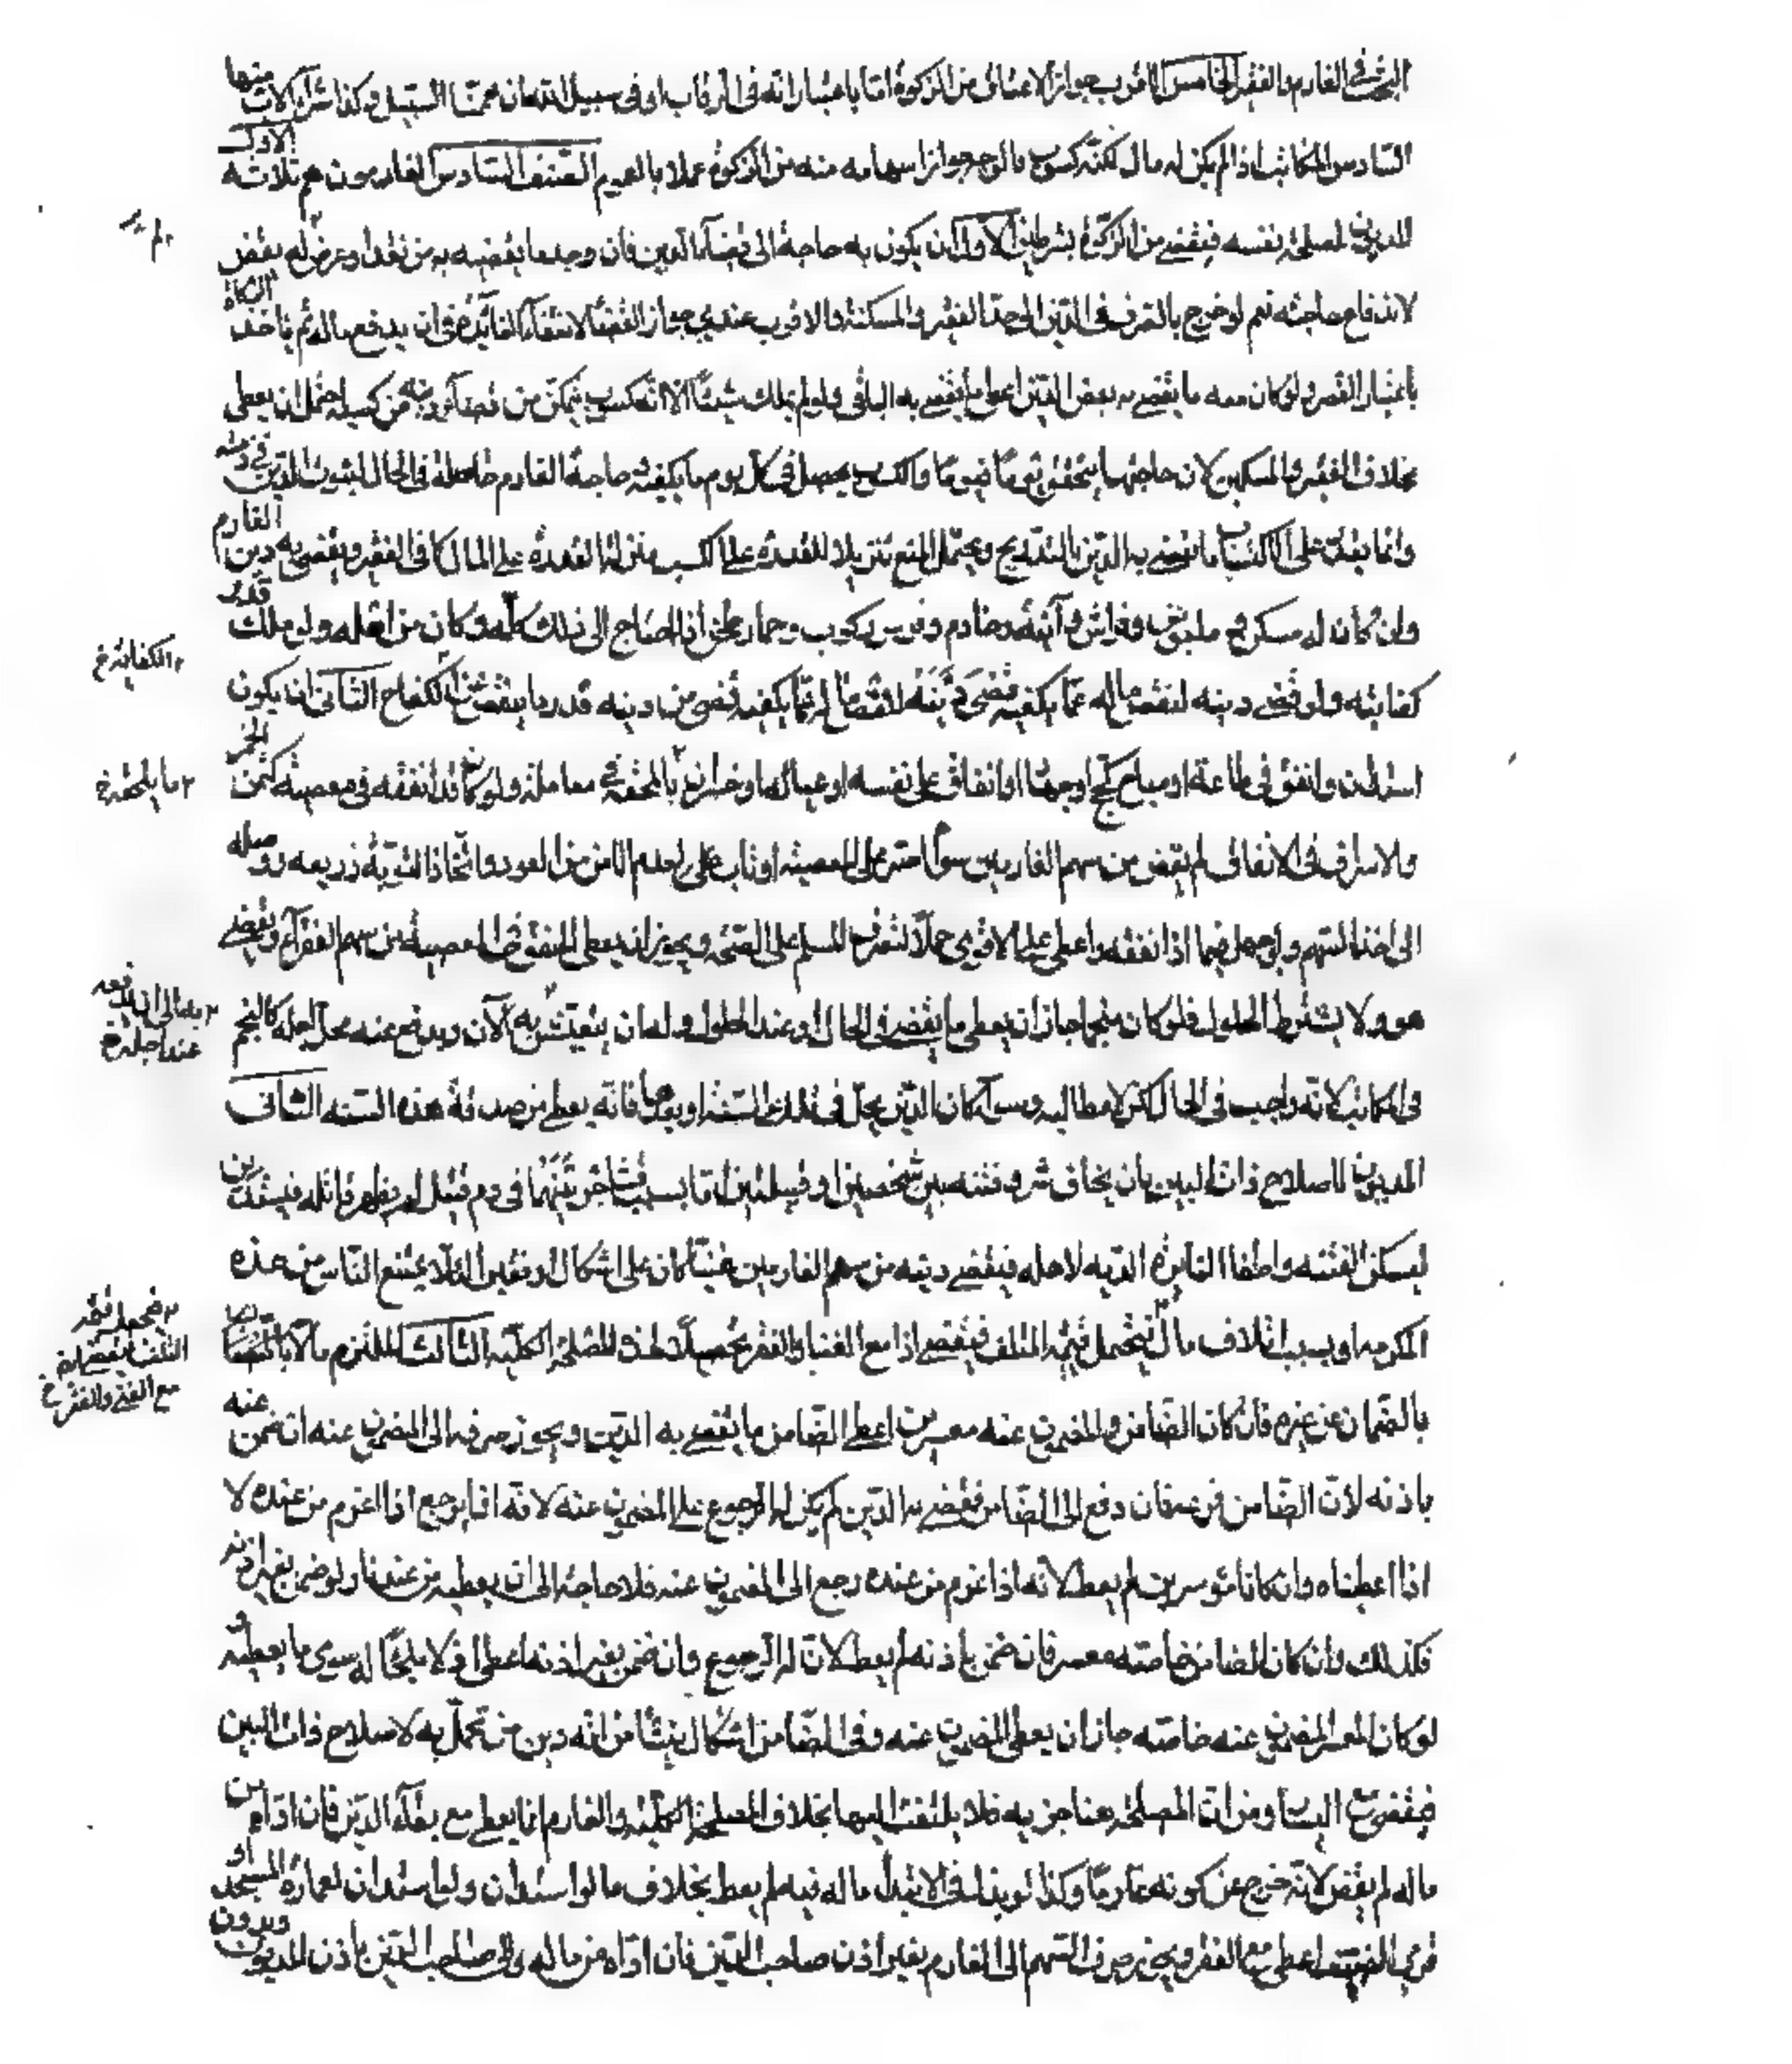 البحث في الغارم والفقير الخامس الاقرب جواز الاعتاق من الزكوة اما باعتبار انه في الرقاب او في سبيل الله ان عممنا السبيل وكذا شراء الاب منها
السادس المكاتب اذا لم يكن له مال لكنه كسوب فالوجه جواز اسهامه منه من الزكوة عملا بالعموم الصنف السادس الغارمون هم ثلاثة الاول
المديون لمصلحة نفسه فيقضى من الزكوة بشرطين الاول ان يكون به حاجة الى قضاء الدين فان وجد ما يقضيه به من نقد او عرض لم يقض
لاندفاع حاجته نعم لو خرج بالصرف في الدين الى حد الفقر والمسكنة فالاقرب عندي جواز القضاء لانتفاء الفائدة في ان يدفع ماله ثم ياخذ الزكاة
باعتبار الفقر ولو كان معه ما يقضى به بعض الدين اعطى ما يقضى به الباقي ولو لم يملك شيئا الا انه كسوب يتمكن من قضاء دينه من كسبه احتمل ان يعطى
بخلاف الفقير والمسكين لان حاجتهما يتحقق يوما فيوما والكسب يحصل في كل يوم ما يكفيه وحاجة الغارم حاصلة في الحال لثبوت الدين في ذمته
وانما يقدر على اكتساب ما يقضى به الدين بالتدريج ويحتمل المنع تنزيلا للقدرة على الكسب منزلة القدرة على المال كما في الفقير ويقضى به دين الغارم
وان كان له مسكن وملبس وفراش وآنية وخادم وفرس ركوب وحمار طحن اذا احتاج الى ذلك كله وكان من اهله ولو ملك قدر
كفايته ولو قضى دينه لنقص ماله عما يكفيه قضى دينه لنقص ماله عما يكفيه قضى من دينه قدر ما ينقص من الكفاح الثاني ان يكون
استدان وانفق في طاعة او مباح كحج او جهاد او انفاق على نفسه او عياله او خسران بالمحقة في معاملة ولو كان قد انفقه في معصية كثمن الخمر
والاسراف في الانفاق لم يقض من سهم الغارمين سواء اصر على المعصية او تاب على راي لعدم الامن من العود واتخاذ التوبة ذريعة ووصلة
الى اخذ السهم ولو جهل فيما اذا انفقه واعطى على الاقوى حملا لتصرف المسلم على الصحة ويجوز ان يعطى المنفق في المعصية من سهم الفقراء ويقضى
هو ولا يشترط الحلول فلو كان منجما جاز ان يعطى ما يقضى في الحال او عند الحلول وله ان يتعيش به الآن ويدفع عنه محل اجله كالنجم
في المكاتب لانه واجب في الحال لكن لا مطالبة وسواء كان الدين يحل في تلك السنة او بعدها فانه يعطى من صدقة هذه السنة الثاني
المديون لاصلاح ذات البين بان يخاف شر وفتنة بين شخصين او قبيلتين اما بسبب تشاجر بينهما في دم قتيل لم يظهر قاتله فيستدين
ليسكن الفتنة واطفاء النائرة الدية لاهله فيقضى دينه من سهم الغارمين غنيا كان على اشكال او فقيرا لئلا يمتنع الناس من هذه
المكرمة او بسبب اتلاف مال فيتحمل قيمة المتلف فيقضى اذا مع الغناء والفقر تحصيلا لهذه المصلحة الكلية الثالث الملتزم مالا
بالضمان عن غيره فان كان الضامن والمضمون عنه معسرين اعطى الضامن ما يقضى به الدين ويجوز صرفه الى المضمون عنه ان ضمن عنه
باذنه لان الضامن فرعه فان دفع الى الضامن فقضى به الدين لم يكن له الرجوع على المضمون عنه لانه انما يرجع اذا اغرم من عنده لا
اذا اعطيناه وان كانا موسرين لم يعط لانه اذا غرم من عنده رجع الى المضمون عنه فلا حاجة الى ان يعطيه من عندنا ولو ضمن بغير اذنه
فكذلك وان كان الضامن خاصته معسر فان ضمن باذنه لم يعط لان له الرجوع وان ضمن بغير اذنه اعطى اذ لا ملجا له سوى ما يعطيه
لو كان المعسر المضمون عنه خاصته جاز ان يعطى المضمون عنه وفي الضامن اشكال ينشأ من انه دين من تحمل به لاصلاح ذات البين
فيقضى مع اليسار ومن ان المصلحة هنا جزئية فلا يلتفت اليها بخلاف المصلحة الكلية والغارم انما يعطى مع بقاء الدين فان اداه من
ماله لم يقض لانه خرج عن كونه غارما وكذا لو بذل في الابتداء ماله فيه لم يعط بخلاف ما لو استدان ولو استدان لعمارة المسجد او
قرى الضيف اعطى مع الفقر ويجوز صرف السهم الى الغارم بغير اذن صاحب الدين فان اداه من ماله والى صاحب الدين باذن المديون وبدون
الكفاية خ
ما يلحقه خ
به الى ان يدفعه
عند اجله خ
مع الغنى والفقر خ